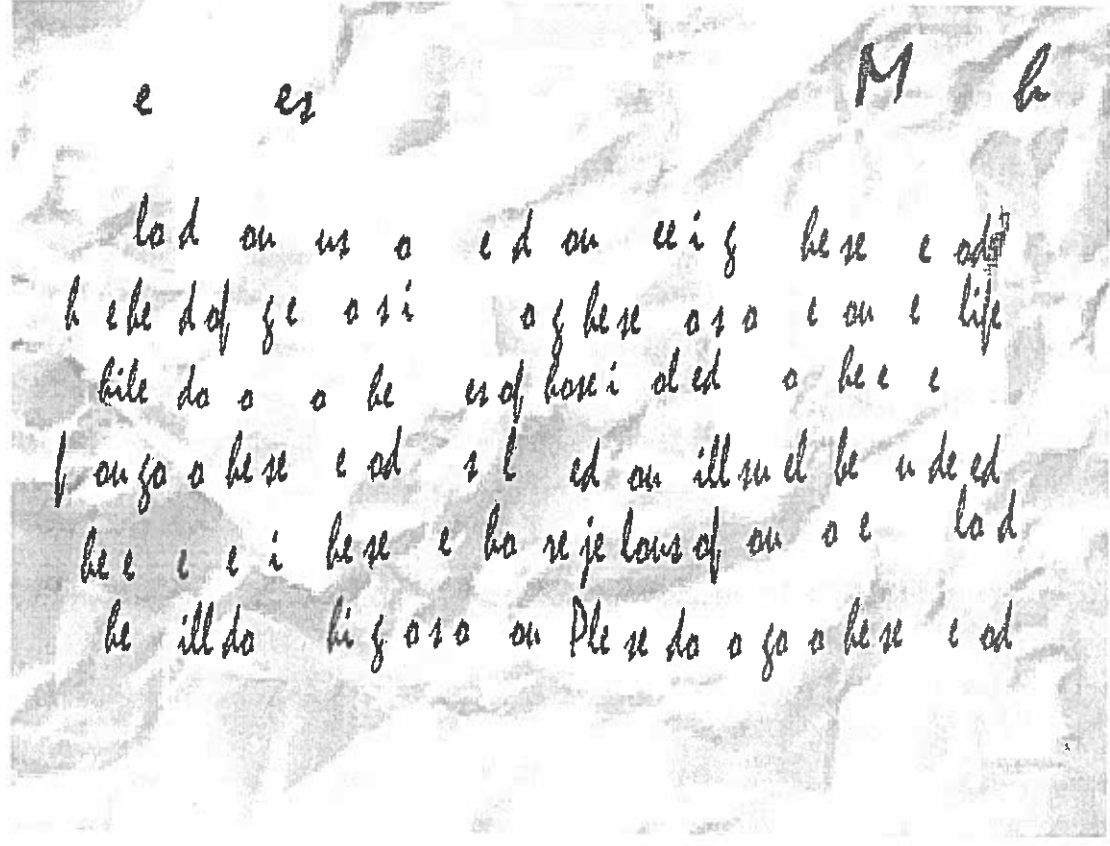 e es M h
lo d ou us o e d ou ee i g he se e od
h e he d of ge o s i o g he se o s o e ou e life
hile do o o he es of hose i ol ed o he e e
f ou go o he se e od s l ed ou ill su el be u de ed
he e e e i he se e ho se je lous of ou o e lo d
he ill do hi g o s o ou Ple se do o go o he se e od